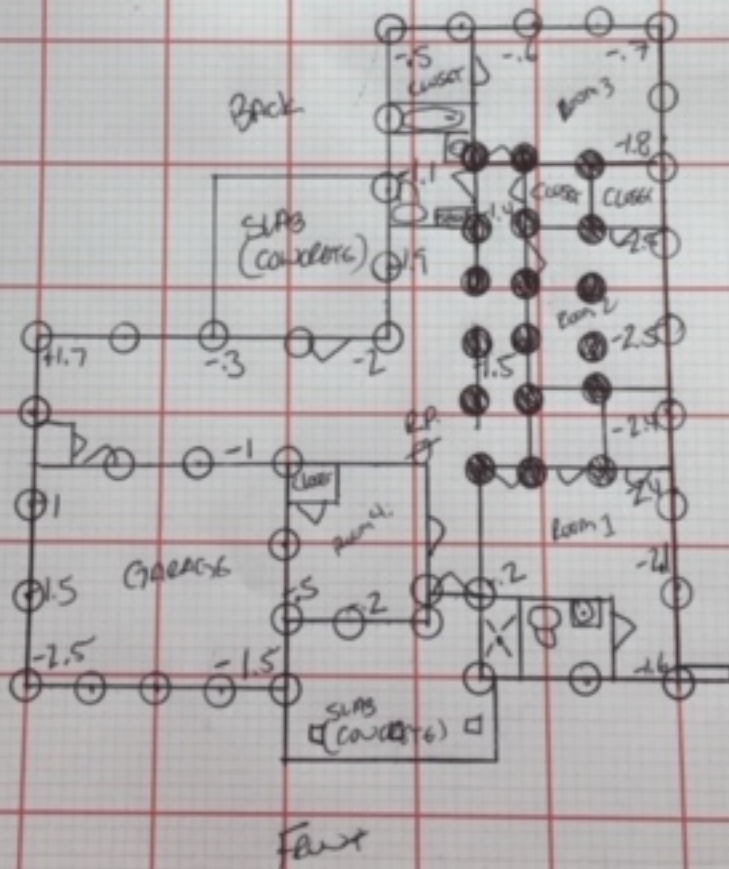 -.5
-.6
-.7
CLOSET
ROOM 3
BACK
-1.8
-1.1
CLOSET
CLOSET
-1.4
SLAB
(CONCRETE)
-2.5
-1.9
ROOM 2
+1.7
-.3
-2
-1.5
-2.5
R.P.
-2.4
-1
CLOSET
-2.4
ROOM 4
ROOM 1
GARAGE
-2.1
1.5
-.5
-.2
-.2
-2.5
-1.5
-1.6
SLAB
(CONCRETE)
FRONT